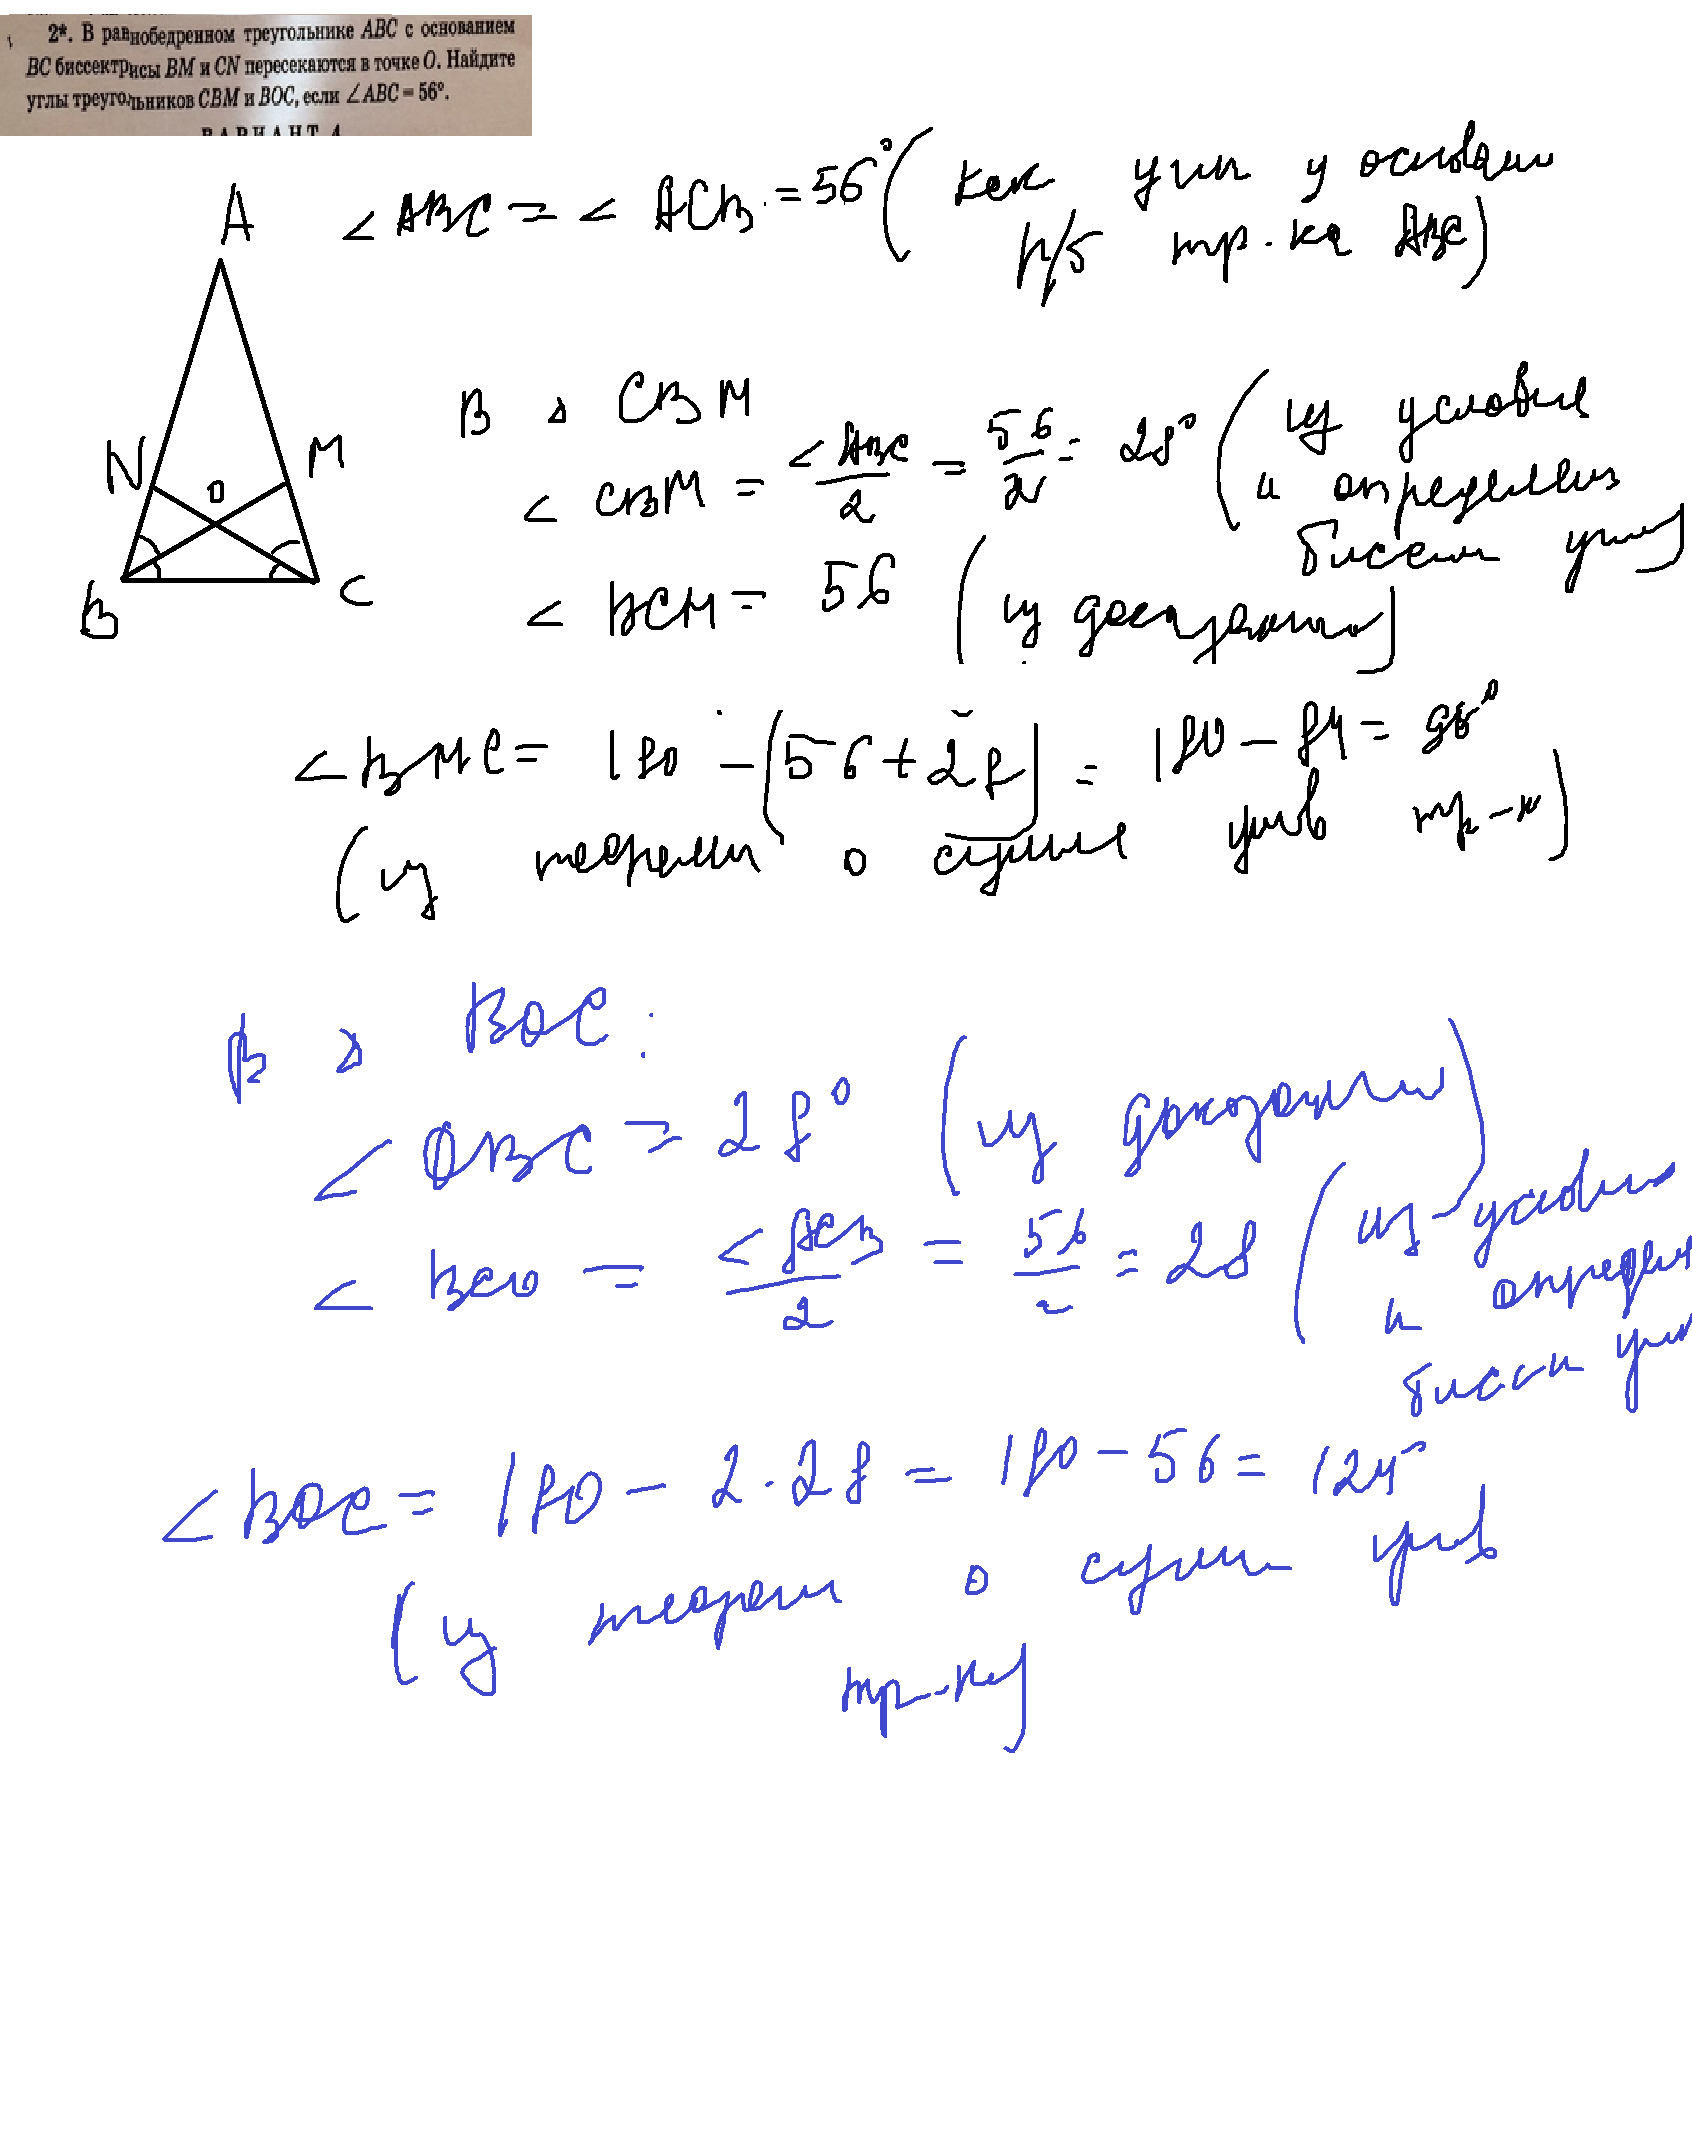 2*. В равнобедренном треугольнике ABC с основанием
BC биссектрисы BM и CN пересекаются в точке O. Найдите
углы треугольников CBM и BOC, если ∠ABC = 56°.
ВАРИАНТ 4
A
N
M
O
B
C
∠ ABC = ∠ ACB = 56° (как угл у основани
р/б тр-ка ABC)
В Δ CBM
∠ CBM = ∠ABC/2 = 56/2 = 28° (из условия
и определения
биссект угла)
∠ BCM = 56 (из доказанного)
∠ BMC = 180 - (56 + 28) = 180 - 84 = 96°
(из теоремы о сумме углов тр-к)
В Δ BOC:
∠ OBC = 28° (из доказанного)
∠ BCO = ∠ACB/2 = 56/2 = 28 (из условия
и определ
бисси угла
∠BOC = 180 - 2·28 = 180 - 56 = 124°
(из теорем о сумм углов
тр-к)